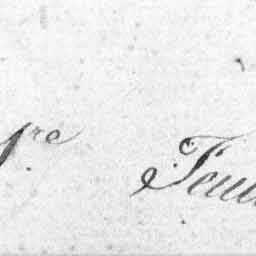 1.re Feui